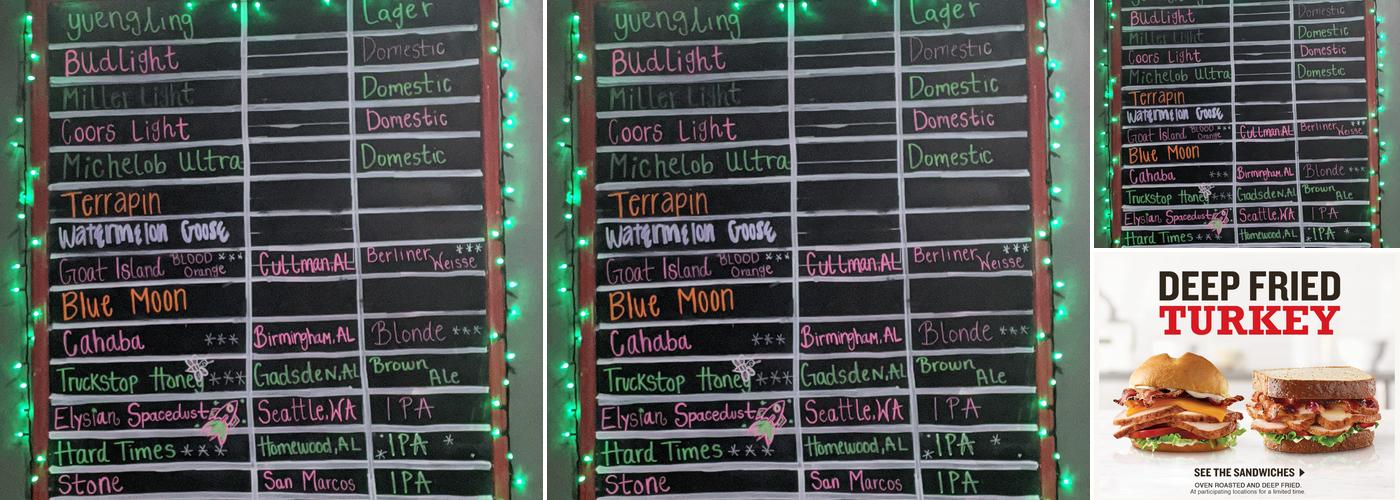 yuengling Lager
BudLight Domestic
Miller Light Domestic
Coors Light Domestic
Michelob Ultra Domestic
Terrapin
Watermelon Goose
Goat Island BLOOD Orange *** Cullman, AL Berliner Weisse ***
Blue Moon
Cahaba *** Birmingham, AL Blonde ***
Truckstop Honey *** Gadsden, AL Brown Ale
Elysian Spacedust Seattle, WA IPA
Hard Times *** Homewood, AL *IPA *
Stone San Marcos IPA
yuengling Lager
BudLight Domestic
Miller Light Domestic
Coors Light Domestic
Michelob Ultra Domestic
Terrapin
Watermelon Goose
Goat Island BLOOD Orange *** Cullman, AL Berliner Weisse ***
Blue Moon
Cahaba *** Birmingham, AL Blonde ***
Truckstop Honey *** Gadsden, AL Brown Ale
Elysian Spacedust Seattle, WA IPA
Hard Times *** Homewood, AL *IPA *
Stone San Marcos IPA
BudLight Domestic
Miller Light Domestic
Coors Light Domestic
Michelob Ultra Domestic
Terrapin
Watermelon Goose
Goat Island BLOOD Orange *** Cullman, AL Berliner Weisse ***
Blue Moon
Cahaba *** Birmingham, AL Blonde ***
Truckstop Honey *** Gadsden, AL Brown Ale
Elysian Spacedust Seattle, WA IPA
Hard Times *** Homewood, AL *IPA *
DEEP FRIED
TURKEY
SEE THE SANDWICHES
OVEN ROASTED AND DEEP FRIED.
At participating locations for a limited time.